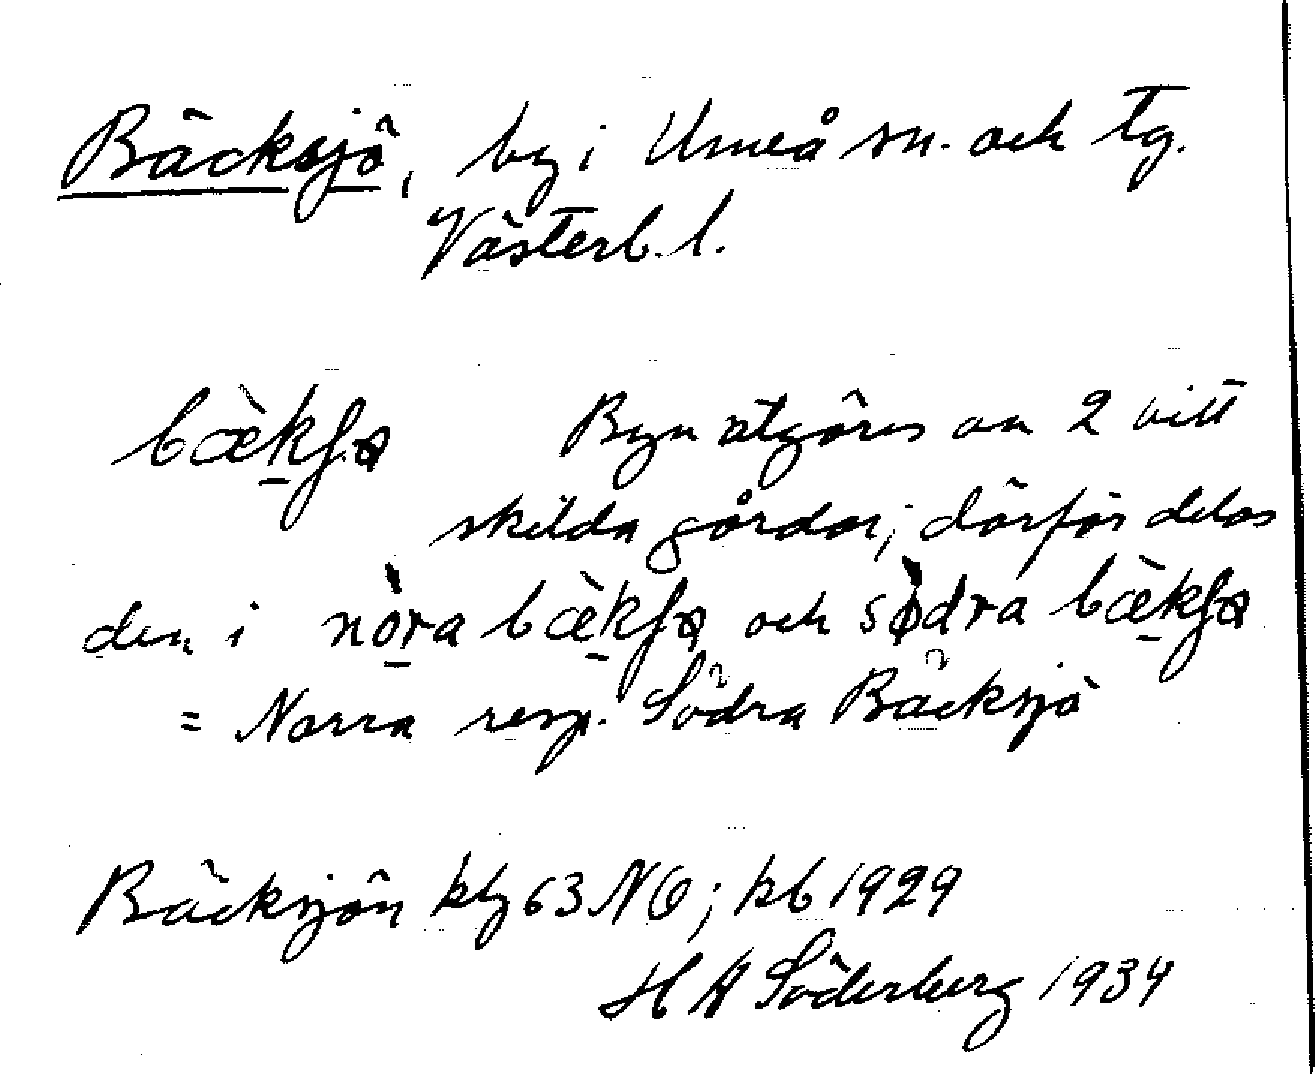 Bäcksjö, by i Umeå sn. och tg.
Västerb. l.
bæ̀kʃø Byn utgöres av 2 vitt
skilda gårdar; därför delas
den i nòra bæ̀kʃø och sø̀dra bæ̀kʃø
= Norra resp. Södra Bäcksjö
Bäcksjön kbl 63 NO; kb 1929
H A Söderberg 1934